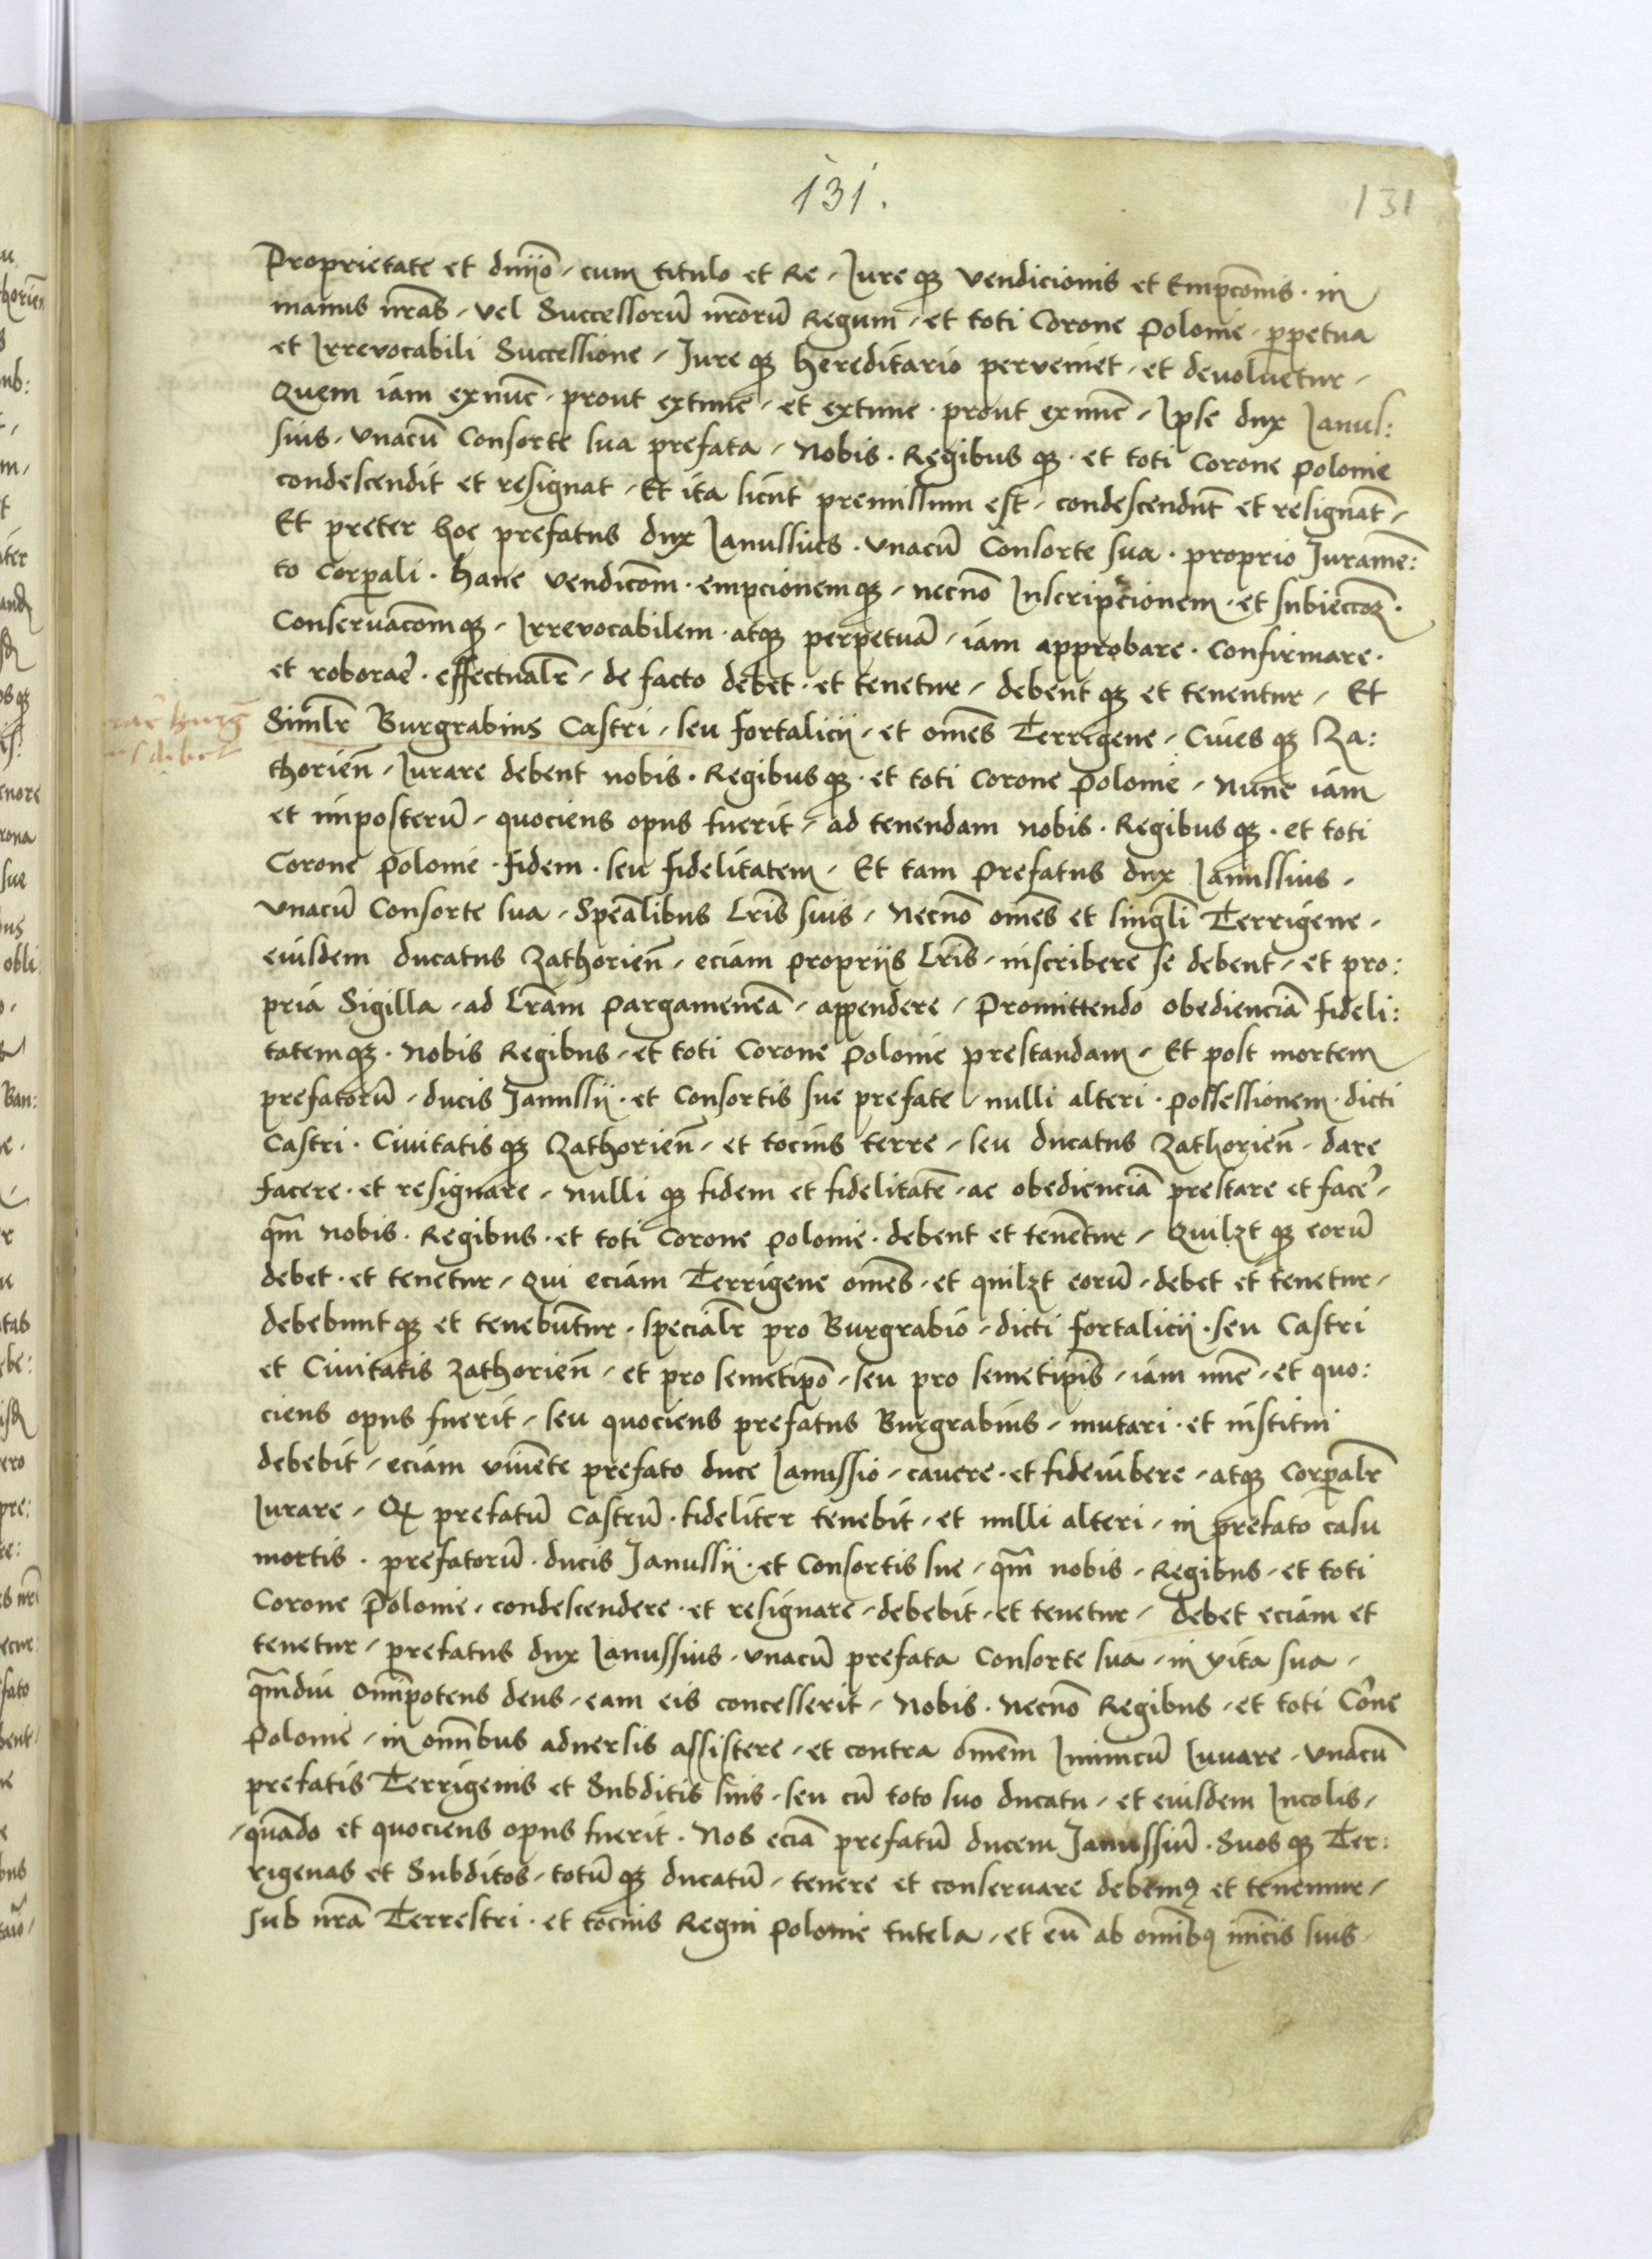 131.
131
Proprietate et dnijo / cum titulo et Re / Jure qꝫ vendicionis et Empcōnis · in
manus nr̄as / vel Successorū nr̄orū Regum / et toti Corone polonie / ꝑpetua
et Irrevocabili Successione / Jure qꝫ hereditario perveniet / et devoluetur /
Quem iam exnūc · prout extunc / et extunc · prout exnūc / Ipse dux Janus:
sius / vnacū Consorte sua prefata / Nobis · Regibus qꝫ · et toti Corone polonie
condescendit et resignat / Et ita sicut premissum est / condescendūt et resignāt /
Et preter hoc prefatus dux Janussius · vnacū Consorte sua · proprio Juramē:
to Corꝑali · hanc vendicōm · empcionem qꝫ / necnō Inscripcionem · et subieccōꝫ ·
Conservacōmqꝫ / Irrevocabilem · atqꝫ perpetuā / iam approbare · Confirmare ·
et roborae᷑ · effectualr̄ / de facto debet · et tenetur / debent qꝫ et tenentur / Et
Siml̄r Burgrabius Castri / seu fortalicij / et oīnes Terrigene / Ciues qꝫ Za:
debet
thorien̄ / Jurare debent nobis · Regibus qꝫ · et toti Corone polonie / Nunc iam
et imposterū / quociens opus fuerit / ad tenendam nobis · Regibus qꝫ · et toti
Corone polonie · fidem · seu fidelitatem / Et tam prefatus dux Janussius ·
vnacū Consorte sua / Speālibus Lr̄is suis / Necnō oīnes et singl̄i Terrigene ·
eiusdem ducatus Zathorien̄ / eciam proprijs Lr̄is / inscribere se debent / et pro:
pria Sigilla / ad Lr̄am pargameneā / appendere / Promittendo obedienciā fideli:
tatemqꝫ · Nobis Regibus / et toti Corone polonie prestandam / Et post mortem
prefatorū / ducis Janussij · et Consortis sue prefate / nulli alteri · possessionem · dicti
Castri · Ciuitatis qꝫ Zathorien̄ / et tocius terre / seu ducatus Zathorien̄ · dare
facere · et resignare / nulli qꝫ fidem et fidelitatē / ac obedienciā prestare et face᷑ /
qm̄ nobis · Regibus · et toti Corone polonie · debent et tenētur / Quilꝫt qꝫ eorū
debet · et tenetur / Qui eciam Terrigene oīnes · et quilꝫt eorū / debet et tenetur /
debebunt qꝫ et tenebūtur · specialr̄ pro Burgrabio / dicti fortalicij · seu Castri
et Ciuitatis Zathorien̄ / et pro semetip̄o / seu pro semetip̄is / iam nūc / et quo:
ciens opus fuerit / seu quociens prefatus Burgrabius / mutari · et institui
debebit / eciam viuēte prefato duce Janussio / cauere · et fideiubere / atqꝫ Corꝑalr̄
Jurare / Qꝫ prefatū Castrū · fideliter tenebit / et nulli alteri / in prefato casu
mortis · prefatorū · ducis Janussij · et Consortis sue / qm̄ nobis / Regibus / et toti
Corone Polonie / condescendere · et resignare / debebit / et tenetur / debet eciam et
tenetur / prefatus dux Janussius / vnacū prefata Consorte sua / in vita sua /
qm̄diu oīnipotens deus / eam eis concesserit / Nobis · Necnō Regibus / et toti Co᷑ne
Polonie / in oīnibus aduersis assistere / et contra oīnem Inimicū Iuuare / vnacū
prefatis Terrigenis et Subditis suis / seu cū toto suo ducatu / et eiusdem Incolis /
/ quādo et quociens opus fuerit · Nos eciā prefatū ducem Janussiū · Suos qꝫ Ter:
rigenas et Subditos / totū qꝫ ducatū / tenere et conseruare debemꝯ et tenemur /
sub nr̄a Terrestri · et tocius Regni polonie tutela / et eū ab oīnibꝯ inīcis suis